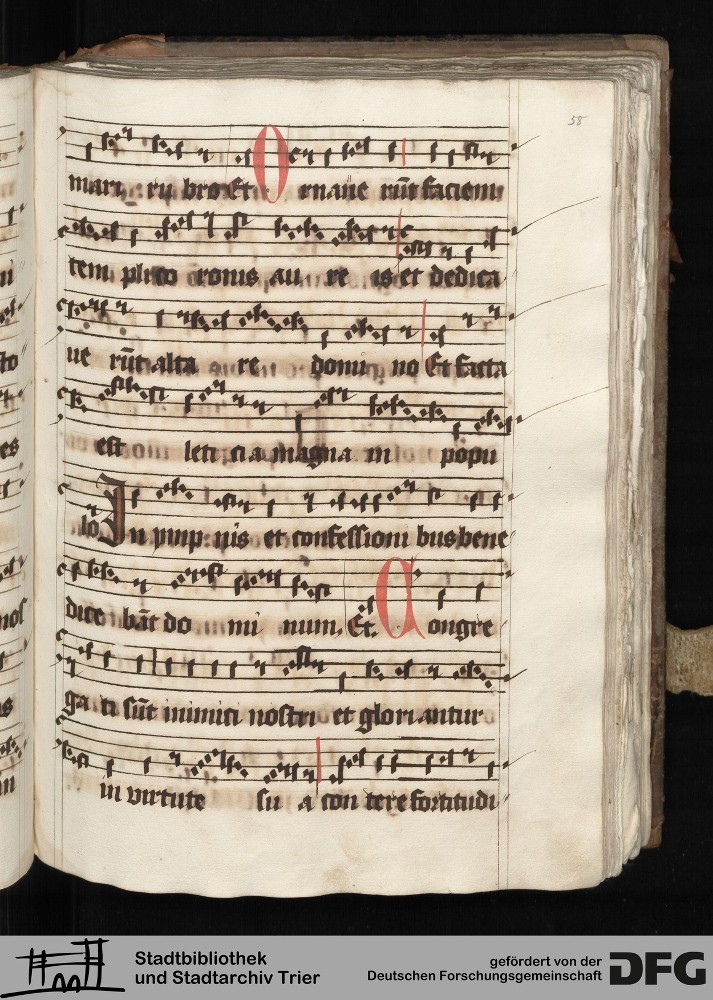 58
mari ru bro Et Ornaue rūt faciem
tem pli co ronis au re is et dedica
ue rūt alta re domi no Et facta
est leti cia magna in popu
lo In ymp nis et confessioni bus bene
dice bāt do mi num. Et. Congre
ga ti sūt inimici nostri et glori antur
in virtute su a con tere fortitudi
Stadtbibliothek
und Stadtarchiv Trier
gefördert von der
Deutschen Forschungsgemeinschaft
DFG